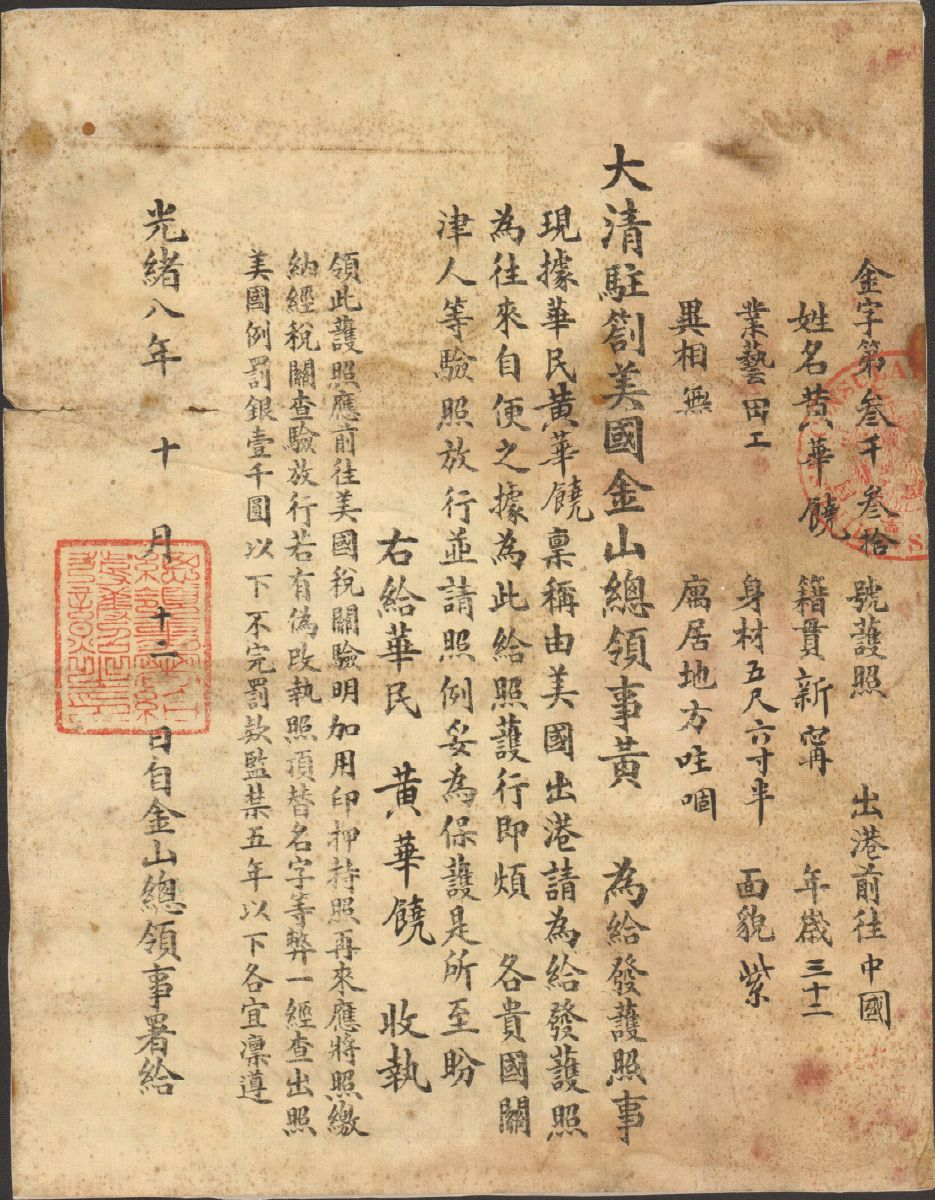 金字第叁千叁拾號護照 出港前往中國
姓名黄華饒 籍貫新寗 年歲三十二
業藝田工 身材五尺六寸半 面貌紫
異相無 寓居地方哇㗂
大清駐劄美國金山總領事黄 為給發護照事
現據華民黄華饒稟稱由美國出港請為給發護照
為往來自便之據為此給照護行即煩 各貴國關
津人等驗照放行並請照例妥為保護是所至盼
右給華民 黄華饒 收執
領此護照應前往美國稅關驗明加用印押持照再來應將照繳
納經稅關查驗放行若有偽改執照頂替名字等弊一經查出照
美國例罰銀壹千圓以下不完罰款監禁五年以下各宜凛遵
光緒八年 十 月 十二 日自金山總領事署給